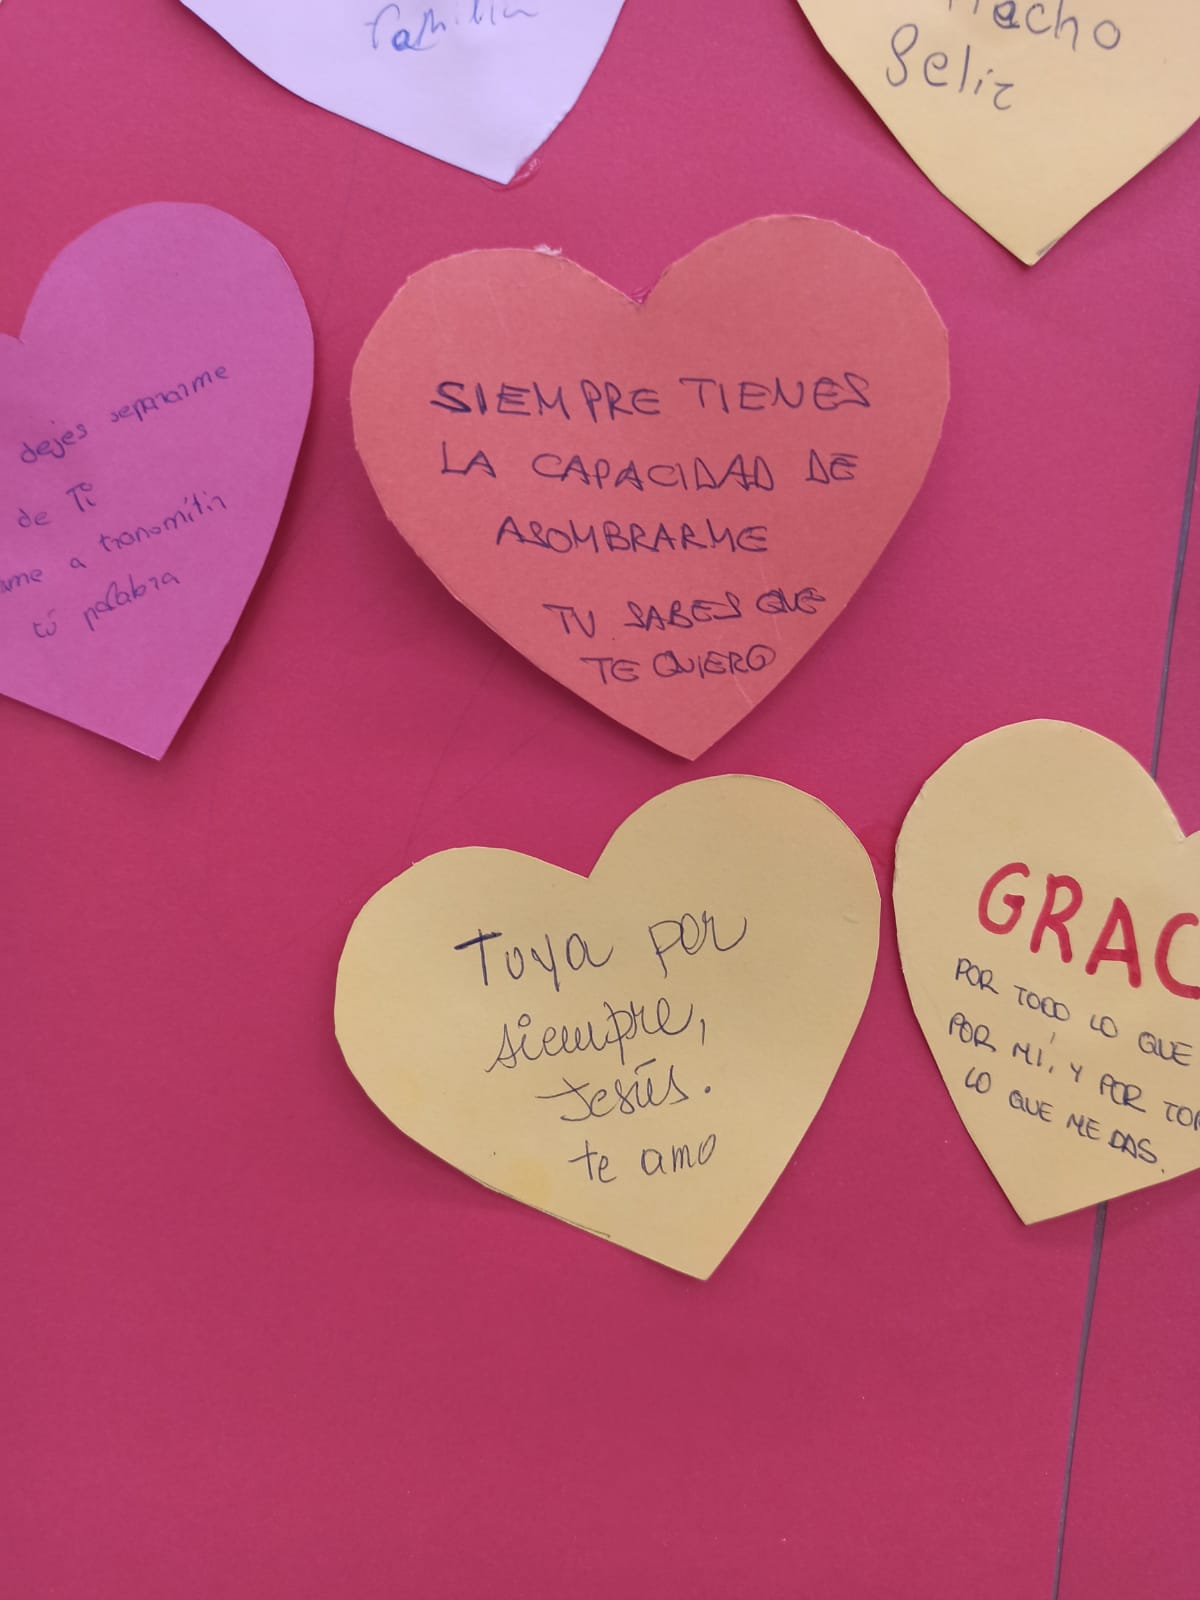 familia
Macho
feliz
dejes separarme
de Ti
me a transmitir
tú palabra
SIEMPRE TIENES
LA CAPACIDAD DE
ASOMBRARME
TU SABES QUE
TE QUIERO
Tuya por
siempre,
Jesús.
te amo
GRAC
POR TODO LO QUE
POR MÍ, Y POR TO
LO QUE ME DAS.